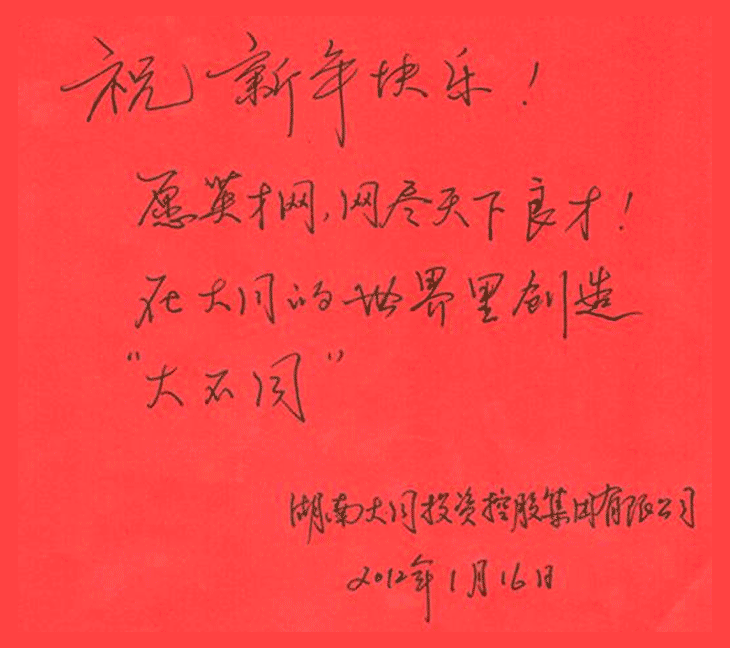 祝新年快乐！
愿英才网,网尽天下良才！
在大同的世界里创造
“大不同”
湖南大同投资控股集团有限公司
2012年1月16日